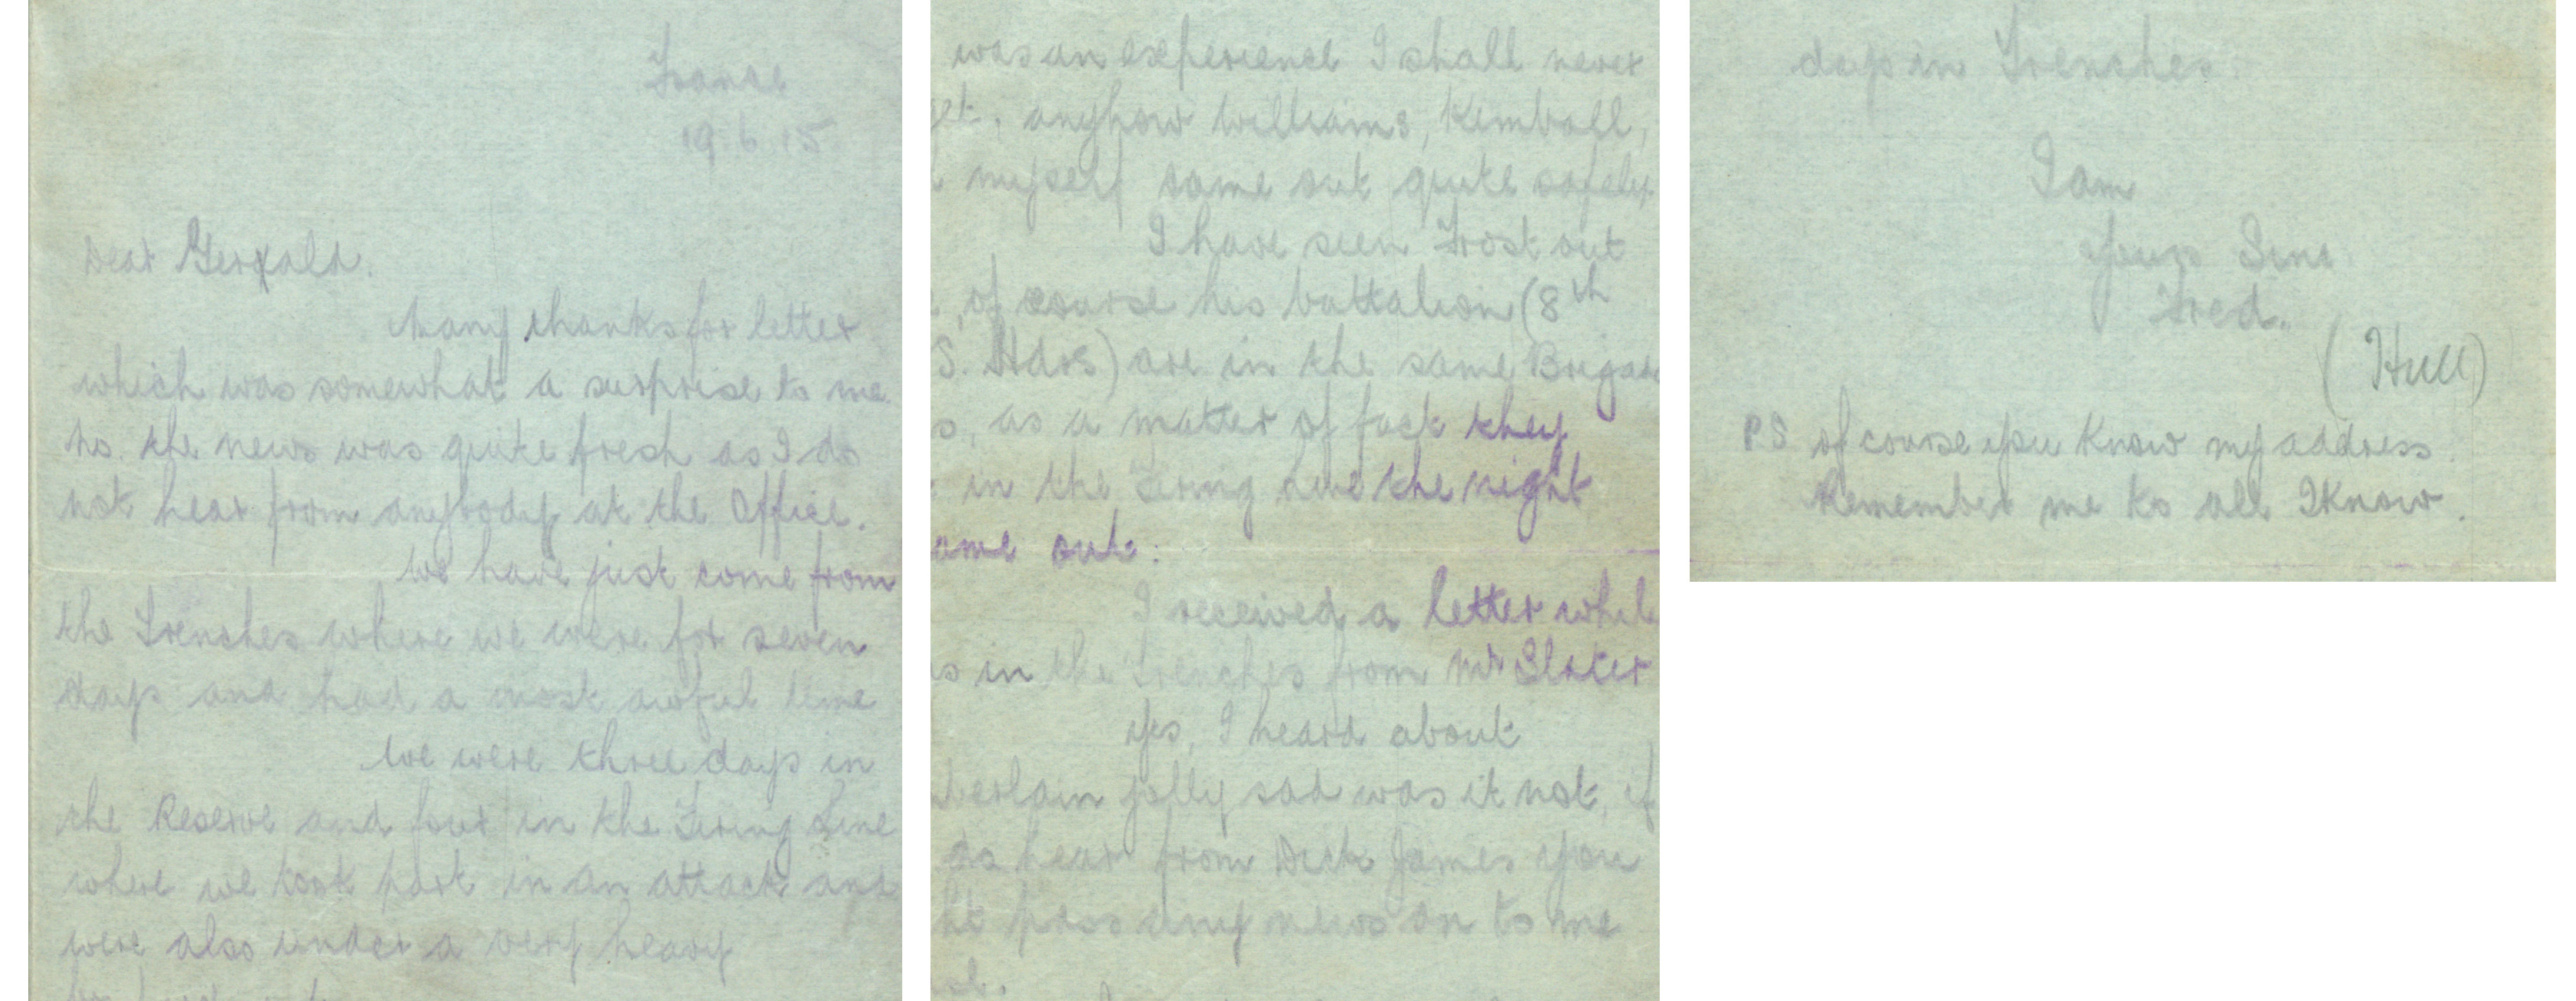 France
19.6.15
Dear Gerald.
Many thanks for letter
which was somewhat a surprise to me.
No. the news was quite fresh as I do
not hear from anybody at the Office.
We have just come from
the Trenches where we were for seven
days and had a most awful time
We were three days in
the Reserve and four in the Firing Line
where we took part in an attack and
were also under a very heavy
was an experience I shall never
get, anyhow Williams, Kemball,
myself came out quite safely.
I have seen Frost out
, of course his battalion (8th
S. Hdrs) are in the same Brigade
s, as a matter of fact they
in the Firing Line the night
ame out.
I received a letter while
s in the Trenches from Mr Slater
Yes, I heard about
berlain jolly sad was it not, if
do hear from Dick James you
ht pass any news on to me
days in Trenches.
I am
Yours Sinc
Fred.
(Hull)
PS of course you know my address.
Remember me to all I know.